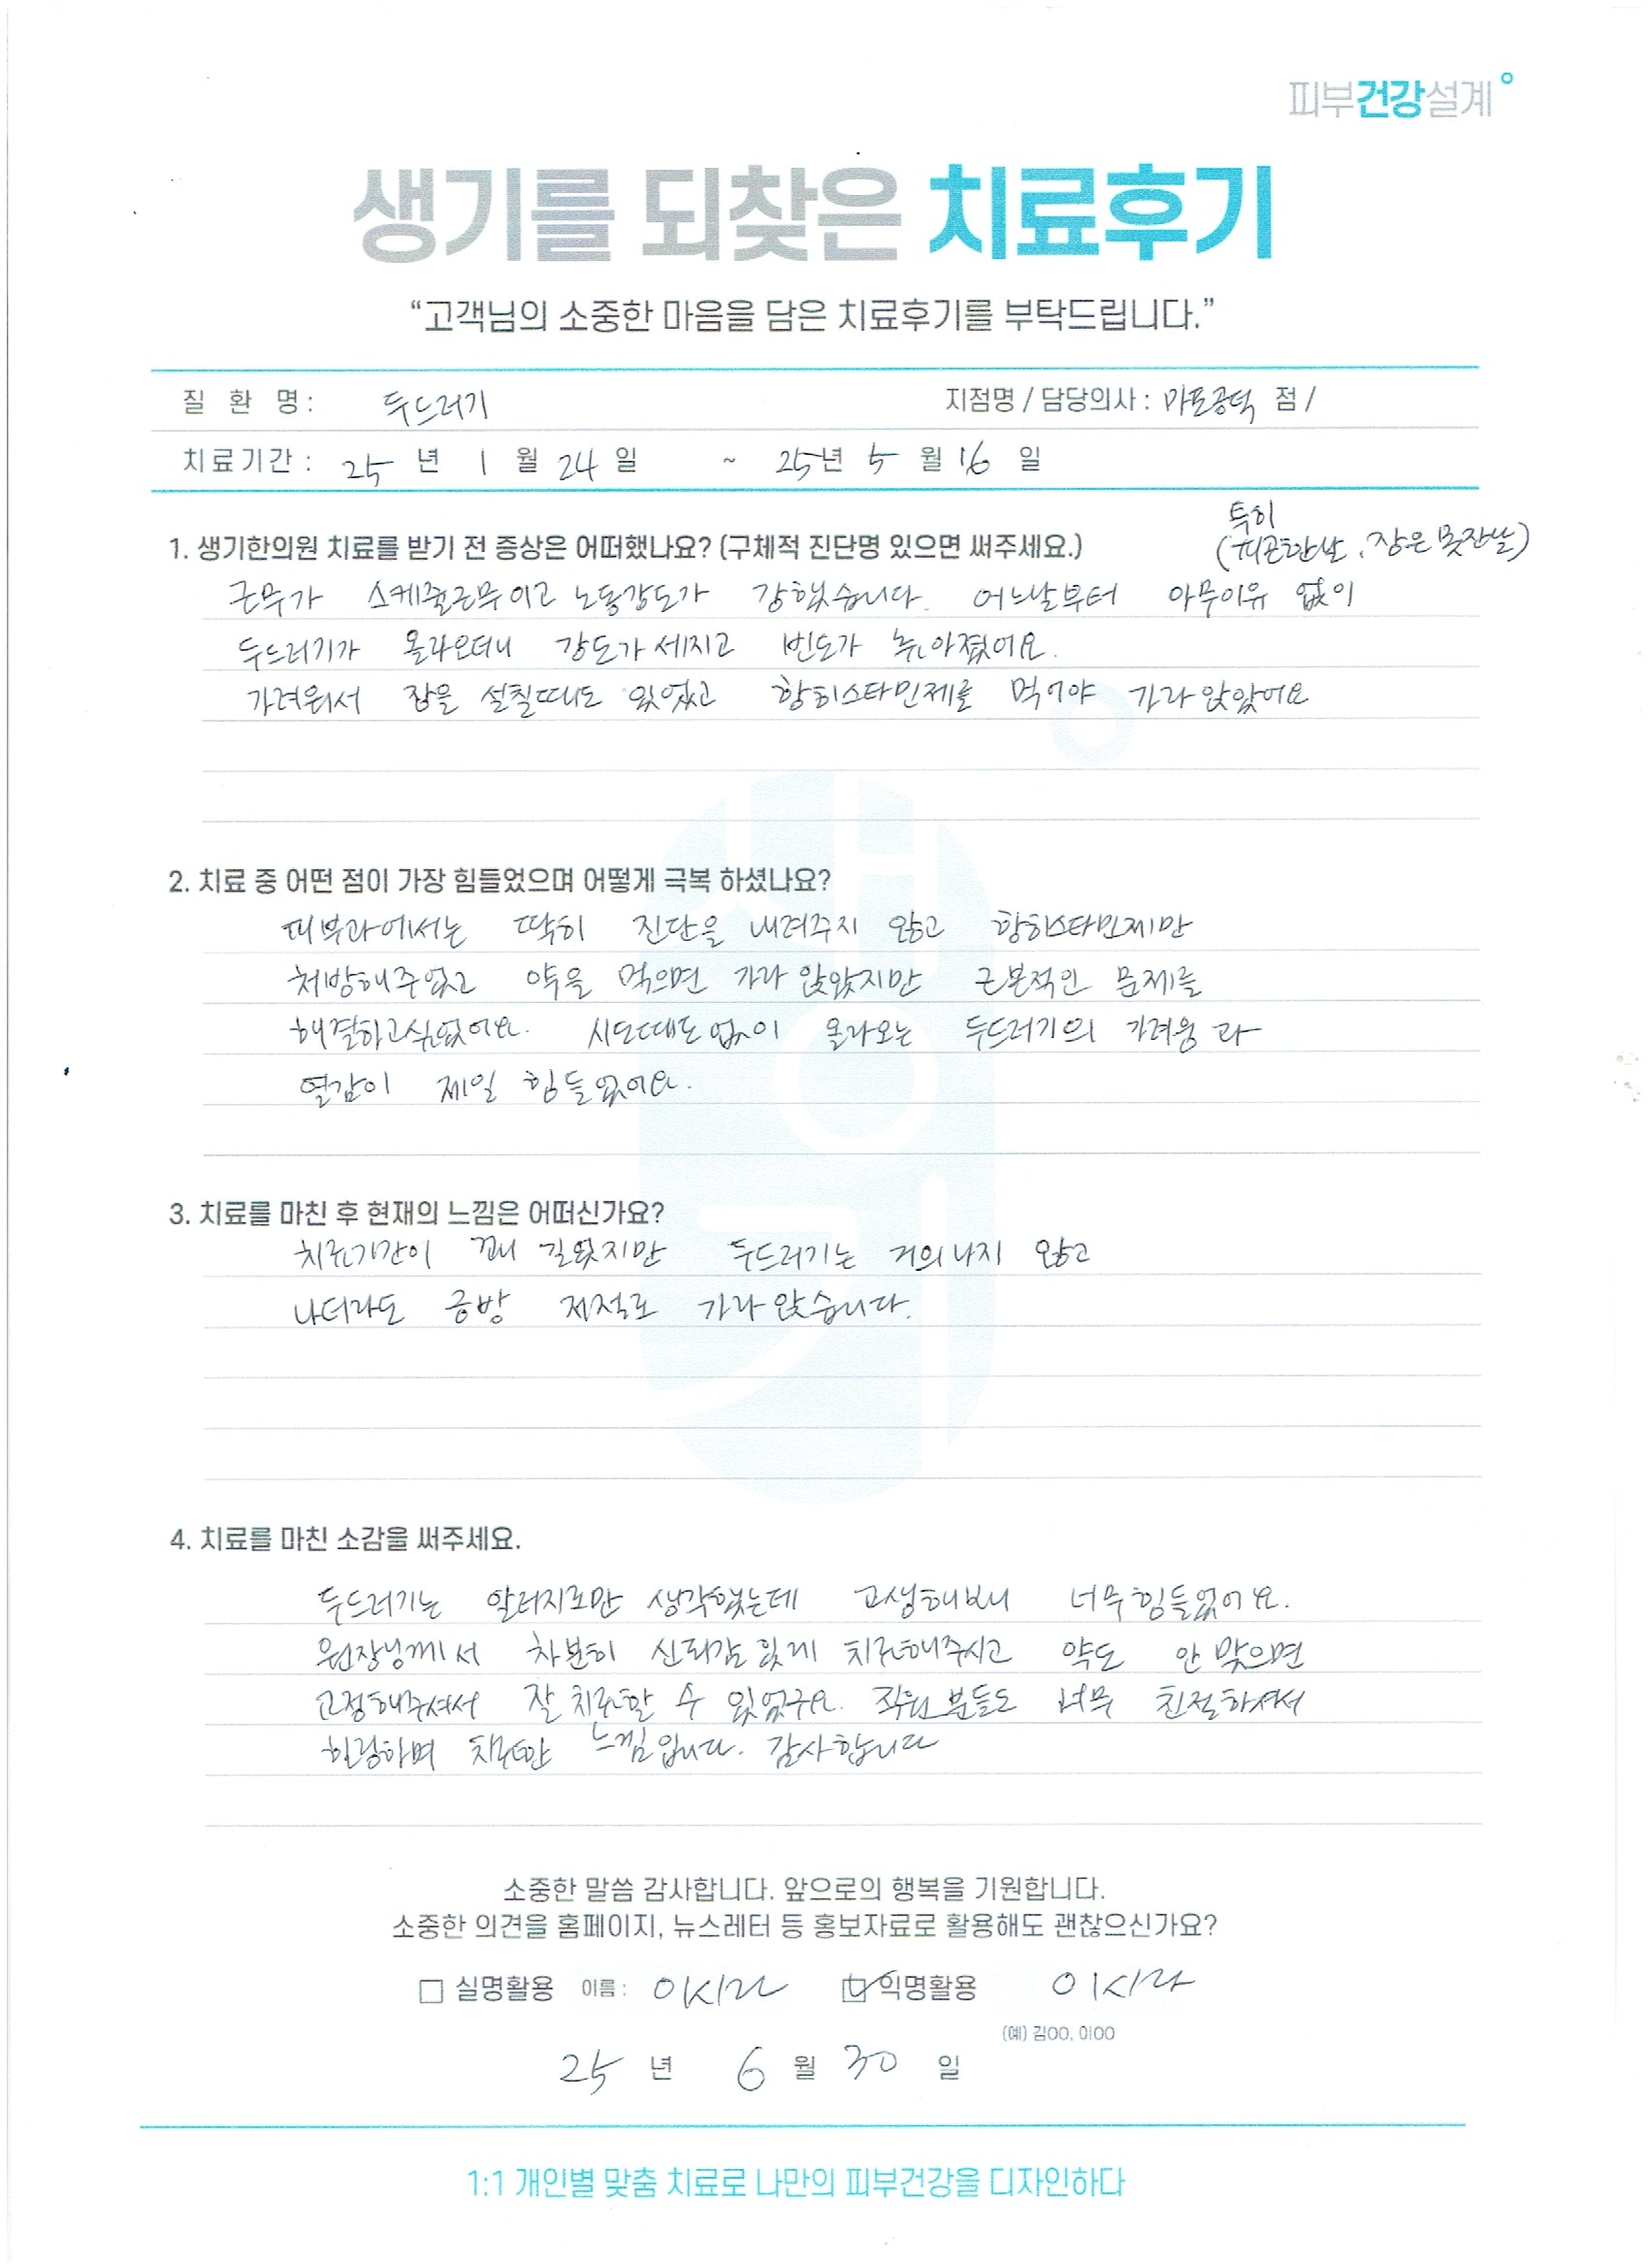 피부건강설계
생기를 되찾은 치료후기
“고객님의 소중한 마음을 담은 치료후기를 부탁드립니다.”
질 환 명 : 두드러기 지점명 / 담당의사 : 마포공덕 점 /
치료기간 : 25 년 1 월 24 일 ~ 25 년 5 월 16 일
특히
1. 생기한의원 치료를 받기 전 증상은 어떠했나요? (구체적 진단명 있으면 써주세요.) (피곤한날, 잠은 못잔날)
근무가 스케줄근무이고 노동강도가 강했습니다. 어느날부터 아무이유 없이
두드러기가 올라오더니 강도가 세지고 빈도가 높아졌어요.
가려워서 잠을 설칠때도 있었고 항히스타민제를 먹어야 가라앉았어요
2. 치료 중 어떤 점이 가장 힘들었으며 어떻게 극복 하셨나요?
피부과에서는 딱히 진단을 내려주지 않고 항히스타민제만
처방해주었고 약을 먹으면 가라앉았지만 근본적인 문제를
해결하고싶었어요. 시도때도없이 올라오는 두드러기의 가려움과
열감이 제일 힘들었어요.
3. 치료를 마친 후 현재의 느낌은 어떠신가요?
치료기간이 꽤 길었지만 두드러기는 거의나지 않고
나더라도 금방 저절로 가라앉습니다.
4. 치료를 마친 소감을 써주세요.
두드러기는 알러지로만 생각했는데 고생해보니 너무힘들었어요.
원장님께서 차분히 신뢰감있게 치료해주시고 약도 안 맞으면
고정해주셔서 잘 치료할 수 있었구요. 직원분들도 너무 친절하셔서
힐링하며 치료한 느낌입니다. 감사합니다
소중한 말씀 감사합니다. 앞으로의 행복을 기원합니다.
소중한 의견을 홈페이지, 뉴스레터 등 홍보자료로 활용해도 괜찮으신가요?
실명활용 이름 : 이시라 익명활용 이시라
(예) 김OO, 이OO
25 년 6 월 30 일
1:1 개인별 맞춤 치료로 나만의 피부건강을 디자인하다
생기